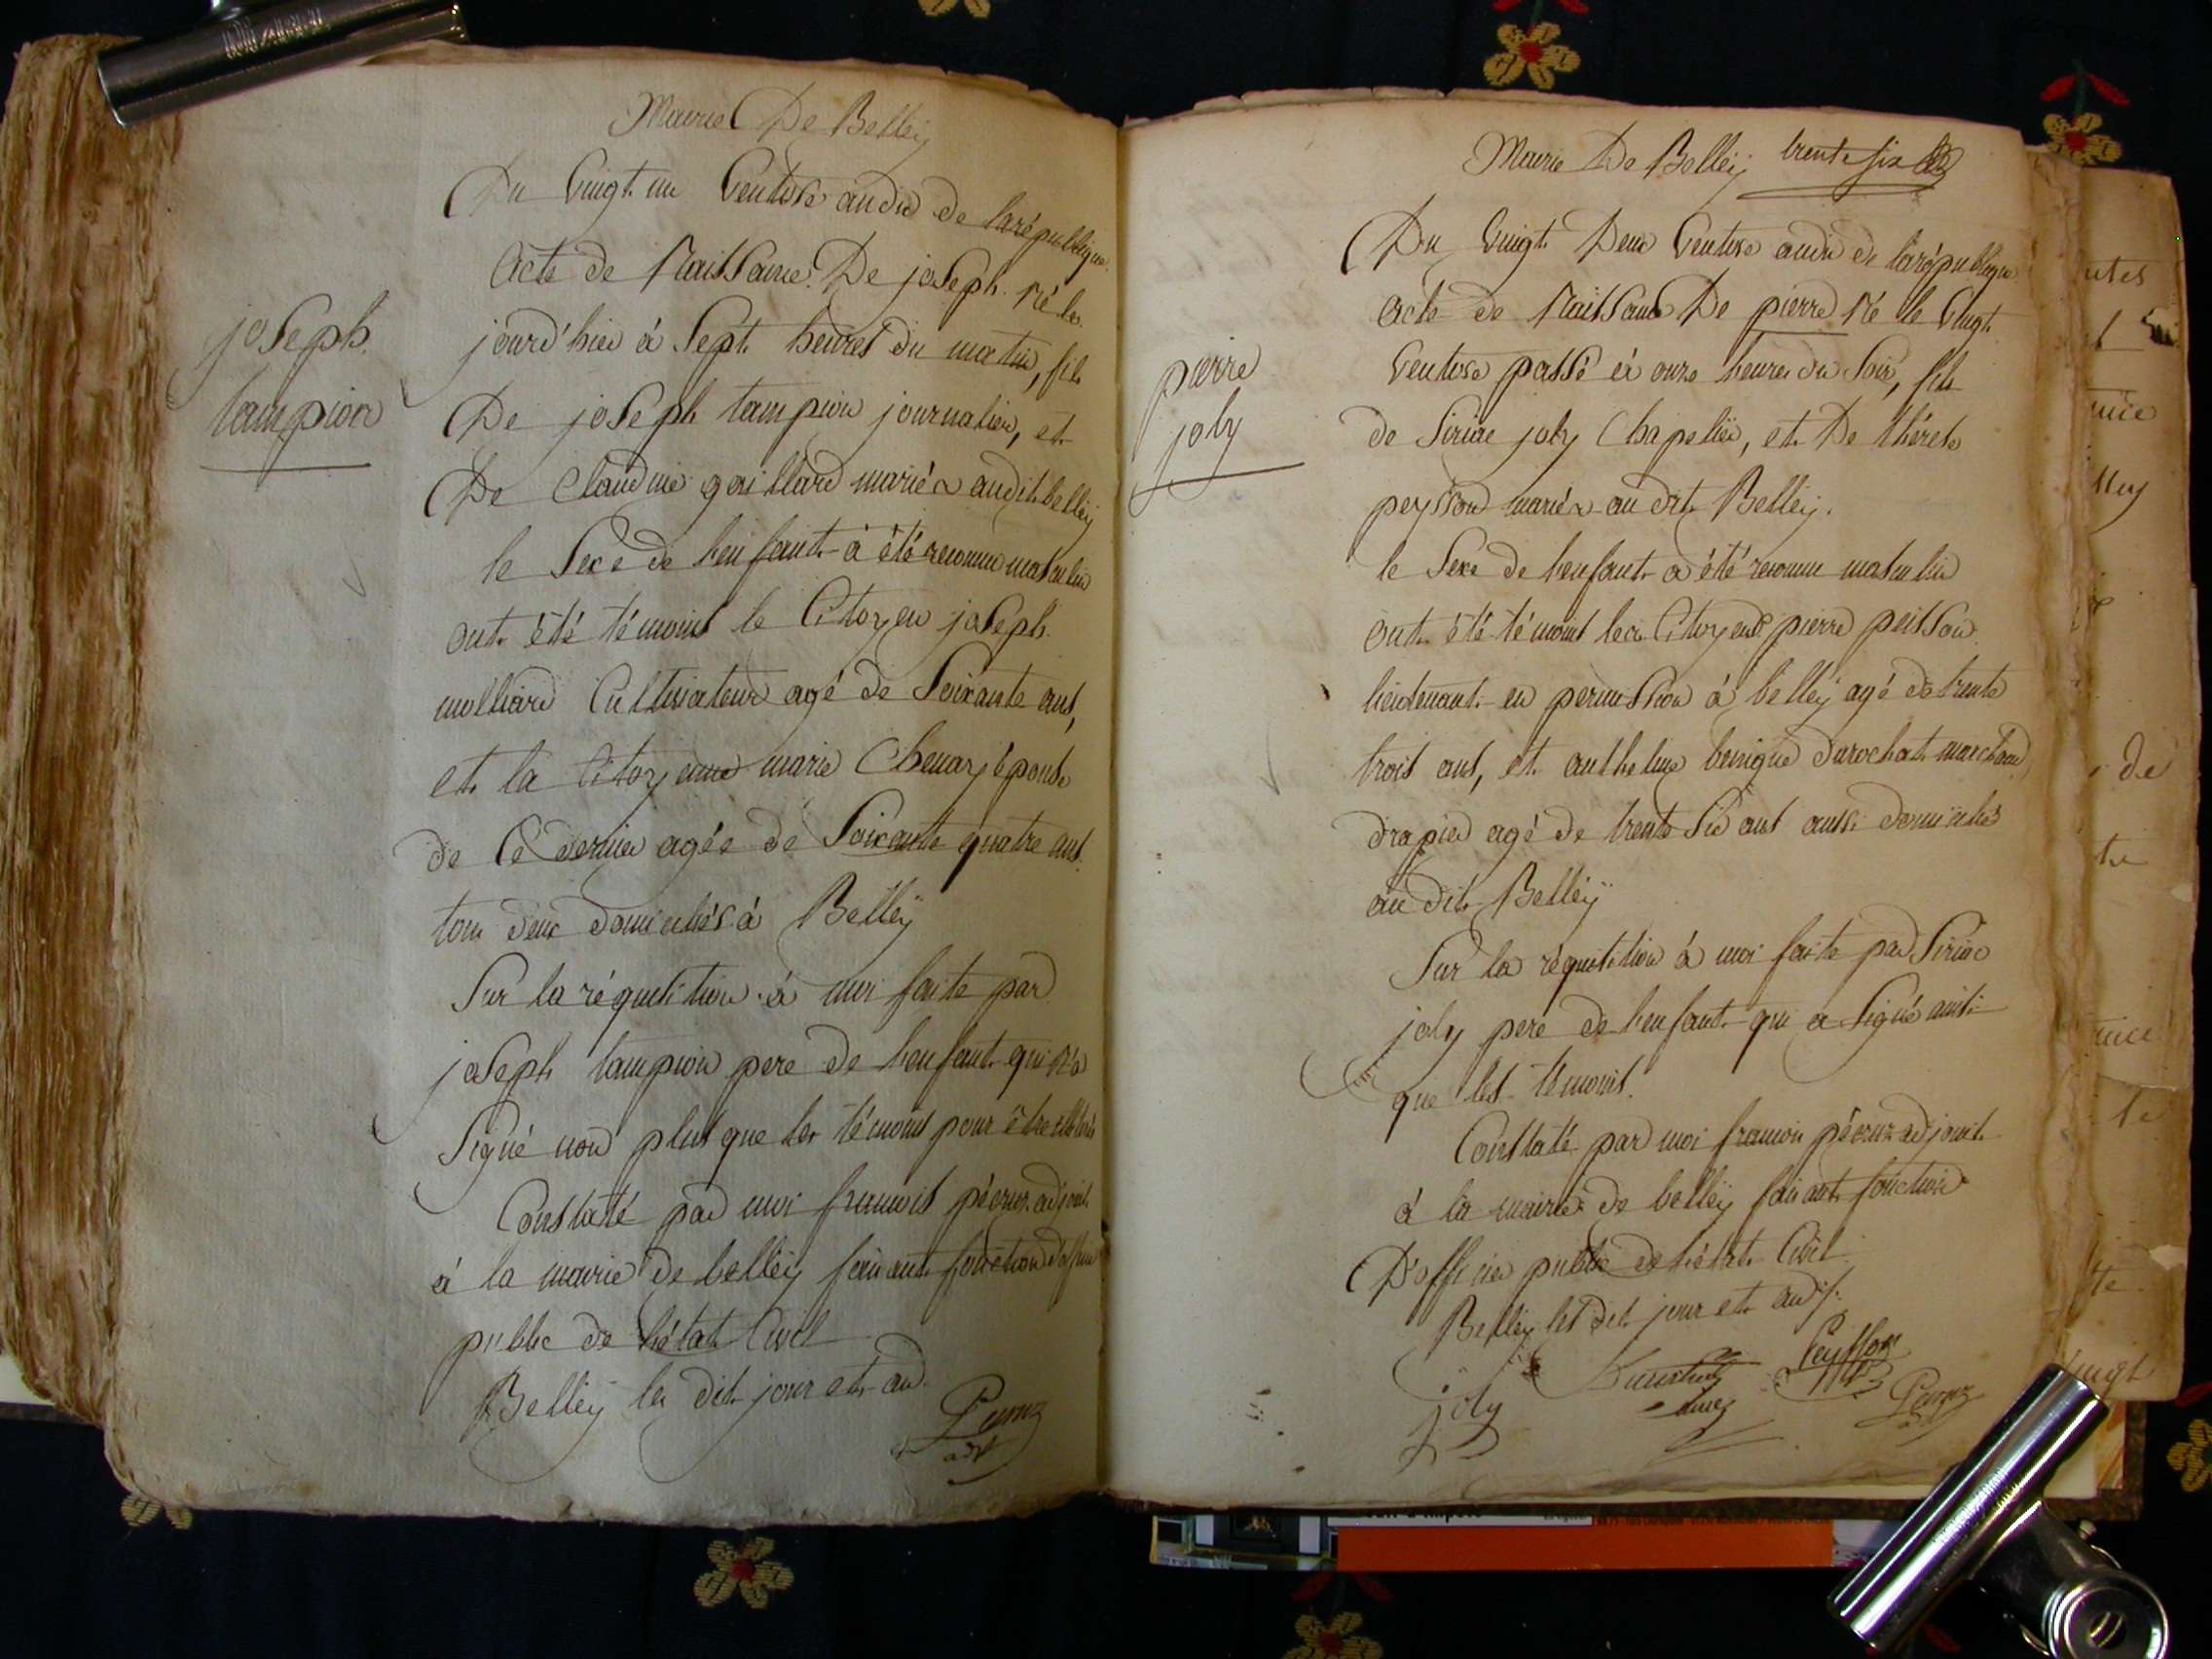 Mairie De Belleÿ
Du vingt un Ventose an dix de la république
Acte de Naissance De joseph Né le
jourd'hier à Sept heures du matin, fils
joseph
tampion
De joseph tampion journalier, et
De Claudine gaillard mariés audit belleÿ
le Sexe de l'enfant à été reconnu masculin
ont été témoins le Citoyen joseph
molliard Cultivateur agé de Soixante ans,
et la Citoyenne marie Chenay épouse
de Ce dernier agée de Soixante quatre ans
tous deux domiciliés à Belleÿ
Sur la réquisition à moi faite par
joseph tampion pere de l'enfant qui N'a
Signé non plus que les témoins pour être illiterés
Constaté par moi francois pécruz adjoint
à la mairie de belleÿ faisant fonction d'officier
public de l'état Civil
Belleÿ les dit jour et an
adjt
Mairie De Belleÿ trente six
Du vingt Deux Ventose an dix de la république
Acte de Naissance De pierre Né le vingt
pierre
joly
Ventose passé à onze heures du Soir, fils
de Siriac joly Chapelier, et De thérese
peysson mariés au dit Belleÿ.
le Sexe de l'enfant a été reconnu masculin
ont été témoins les Citoyens pierre peisson
lieutenant en permission à belleÿ agé de trente
trois ans, et anthelme benigne durochat marchand
drapier agé de trente Six ans aussi domiciliés
au dit Belleÿ
Sur la réquisition à moi faite par Siriac
joly pere de l'enfant qui a Signé ainsi
que les témoins.
Constaté par moi francois pécruz adjoint
à la mairie de belleÿ faisant fonction
D'officier public de l'état Civil
Belleÿ les dit jour et an
joly
Peysson
utes
de
te
vingt